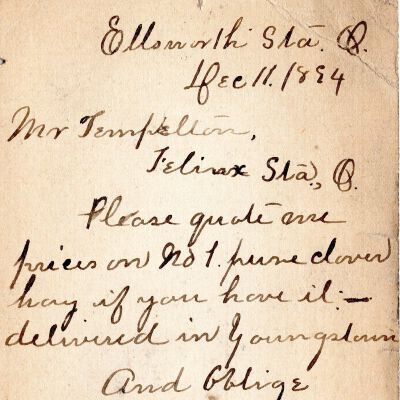 Ellsworth Sta. O.
Dec 11. 1894
Mr Templeton,
Felinx Sta., O.
Please quote me
prices on No 1. pure clover
hay if you have it:—
delivered in Youngstown
And Oblige